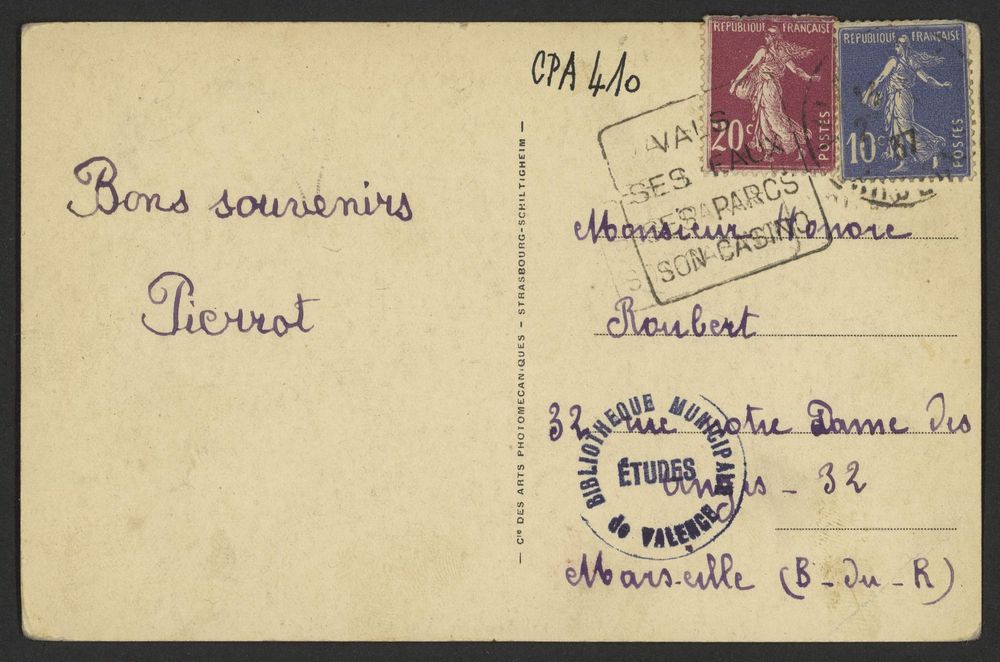 CPA 410
REPUBLIQUE FRANÇAISE
20c
POSTES
REPUBLIQUE FRANÇAISE
10c
POSTES
37
VALS
SES EAUX
SES PARCS
SON CASINO
Bons souvenirs
Pierrot
— Cie DES ARTS PHOTOMECANIQUES - STRASBOURG-SCHILTIGHEIM —
Monsieur Honore
Roubert
32 rue Notre Dame des
Anges - 32
Marseille (B-du-R)
BIBLIOTHEQUE MUNICIPALE
ÉTUDES
de VALENCE